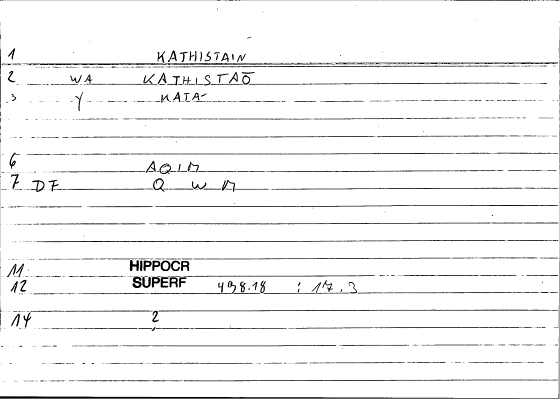 1 KATHISTAIN
2 WA KATHISTAŌ
3 Y KATA-
6 AQIM
7 DF Q W M
11 HIPPOCR
12 SUPERF 498.18 : 17.3
14 2